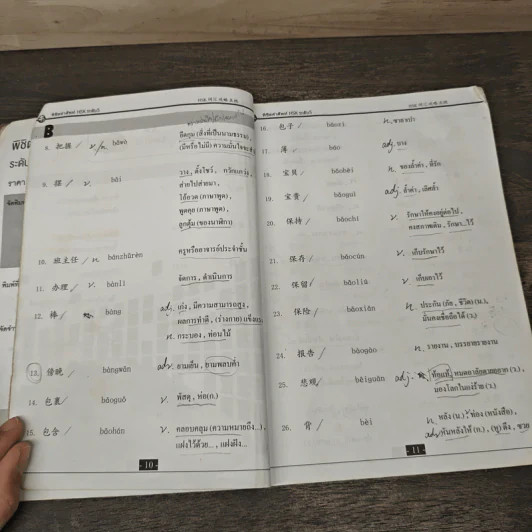 B
8. 把握 / v/n bǎwò ยึดกุม (สิ่งที่เป็นนามธรรม),
(มีหรือไม่มี) ความมั่นใจ
9. 摆 / v. bǎi วาง, ตั้งโชว์,
ส่ายไปส่ายมา,
(ภาษาพูด),
พูดคุย (ภาษาพูด),
ลูกตุ้ม (ของนาฬิกา)
10. 班主任 / n bānzhǔrèn ครูหรืออาจารย์ประจำชั้น
11. 办理 / v. bànlǐ จัดการ, ดำเนินการ
12. 棒 / bàng adj. เก่ง, มีความสามารถสูง,
ผลการทำดี, (ร่างกาย) แข็งแรง
n. กระบอง, ท่อนไม้
13. 傍晚 / bàngwǎn adv. ยามเย็น, ยามพลบค่ำ
14. 包裹 / bāoguǒ v. พัสดุ, ห่อ(ก.)
15. 包含 / bāohán v. คลอบคลุม (ความหมายถึง...),
แฝงไว้ด้วย..., แฝงถึง...
- 10 -
16. 包子 / bāozi n. ซาลาเปา
17. 薄 / báo adj. บาง
18. 宝贝 / bǎobèi n. ของล้ำค่า, ที่รัก
19. 宝贵 / bǎoguì adj. ล้ำค่า, มีค่า
20. 保持 / bǎochí v. รักษาให้คงอยู่ต่อไป,
คงสภาพเดิม, รักษา..ไว้
21. 保存 / bǎocún v. เก็บรักษาไว้
22. 保留 / bǎoliú v. เก็บเอาไว้
23. 保险 / bǎoxiǎn n. ประกัน (ภัย, ชีวิต) (น.),
มั่นคงเชื่อถือได้ (ว.)
24. 报告 / bàogào n. รายงาน, บรรยายรายงาน
25. 悲观 / bēiguān adj. ท้อแท้, หมดอาลัยตายอยาก (ว.),
มองโลกในแง่ร้าย (ว.)
26. 背 / bèi n. หลัง (น.), ท่อง (หนังสือ),
adv หันหลังให้ (ก.), (หู) ตึง, ซวย
- 11 -